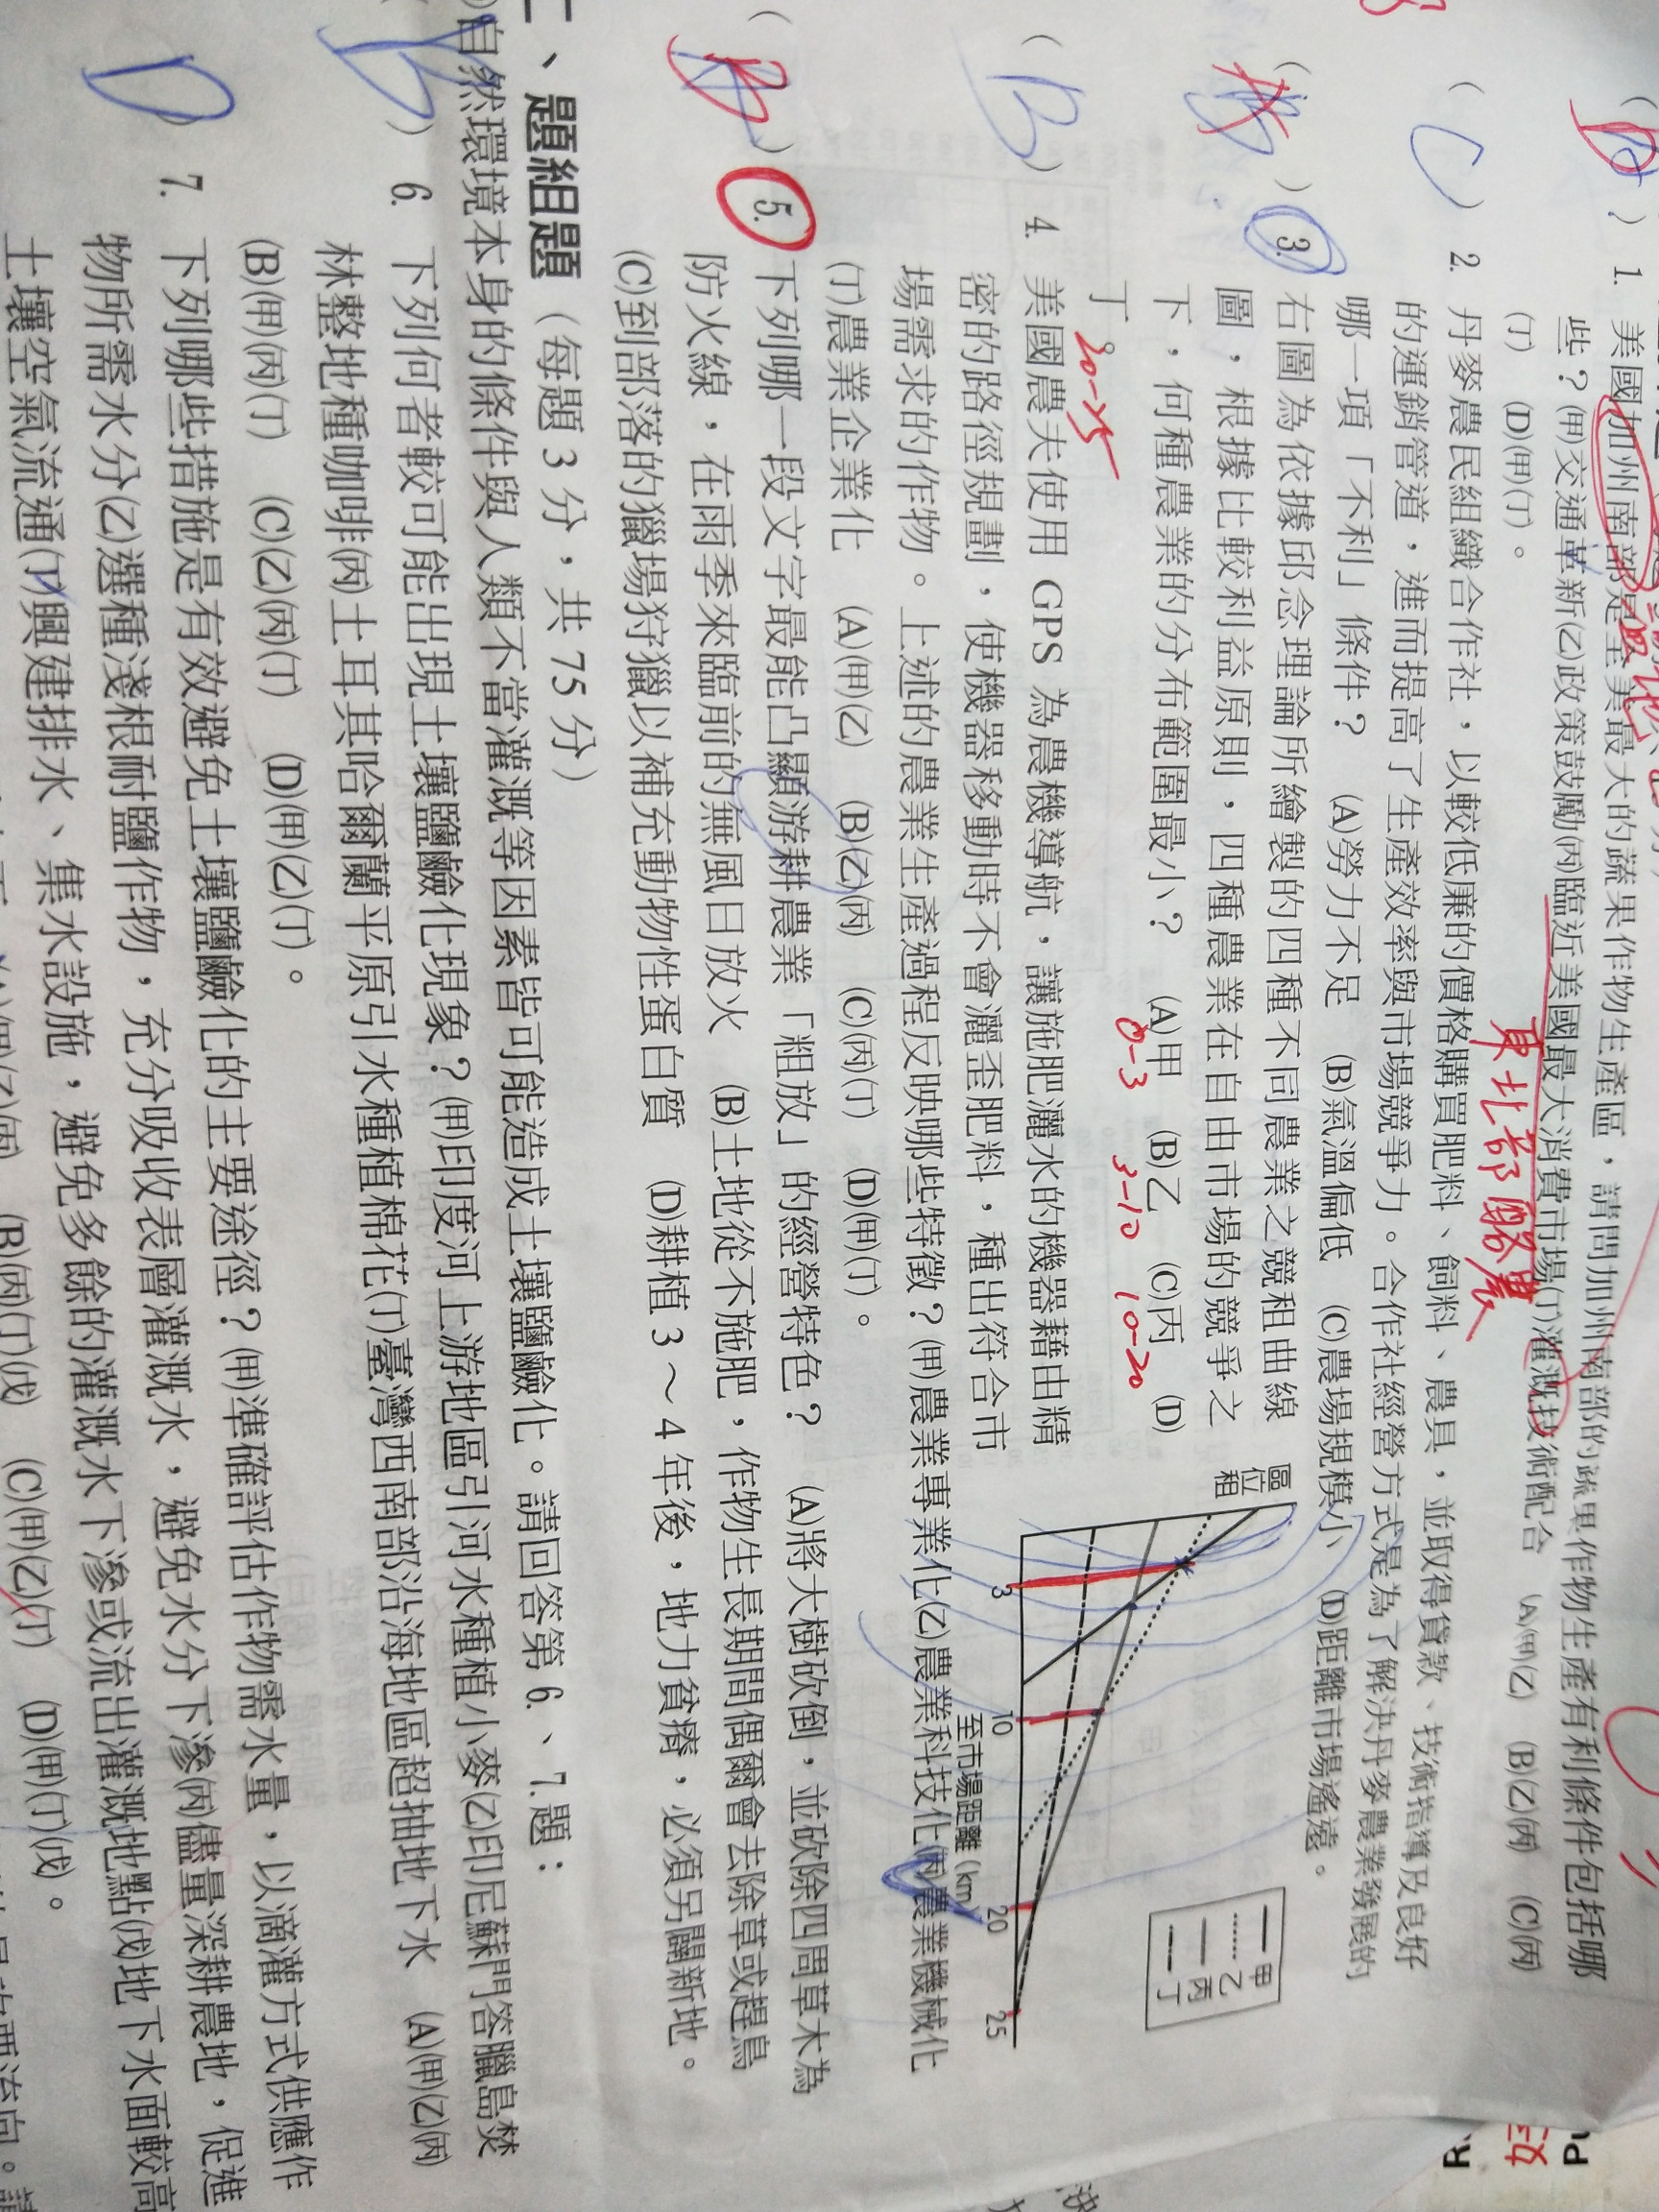 1. 美國加州南部是全美最大的蔬果作物生產區，請問加州南部的蔬果作物生產有利條件包括哪
些？(甲)交通革新(乙)政策鼓勵(丙)臨近美國最大消費市場(丁)灌溉技術配合　(A)(甲)(乙)　(B)(乙)(丙)　(C)(丙)
(丁)　(D)(甲)(丁)。
東北部酪農
( C ) 2. 丹麥農民組織合作社，以較低廉的價格購買肥料、飼料、農具，並取得貸款、技術指導及良好
的運銷管道，進而提高了生產效率與市場競爭力。合作社經營方式是為了解決丹麥農業發展的
哪一項「不利」條件？　(A)勞力不足　(B)氣溫偏低　(C)農場規模小　(D)距離市場遙遠。
3. 右圖為依據邱念理論所繪製的四種不同農業之競租曲線
圖，根據比較利益原則，四種農業在自由市場的競爭之
下，何種農業的分布範圍最小？　(A)甲　(B)乙　(C)丙　(D)
丁。
0-3　3-10　10-20
20-25
區位租
3　10　20　25
至市場距離(km)
甲
乙
丙
丁
( B ) 4. 美國農夫使用 GPS 為農機導航，讓施肥灑水的機器藉由精
密的路徑規劃，使機器移動時不會灑歪肥料，種出符合市
場需求的作物。上述的農業生產過程反映哪些特徵？(甲)農業專業化(乙)農業科技化(丙)農業機械化
(丁)農業企業化　(A)(甲)(乙)　(B)(乙)(丙)　(C)(丙)(丁)　(D)(甲)(丁)。
( B ) 5. 下列哪一段文字最能凸顯游耕農業「粗放」的經營特色？　(A)將大樹砍倒，並砍除四周草木為
防火線，在雨季來臨前的無風日放火　(B)土地從不施肥，作物生長期間偶爾會去除草或趕鳥
(C)到部落的獵場狩獵以補充動物性蛋白質　(D)耕植 3～4 年後，地力貧瘠，必須另闢新地。
二、題組題（每題 3 分，共 75 分）
自然環境本身的條件與人類不當灌溉等因素皆可能造成土壤鹽鹼化。請回答第 6.、7.題：
6. 下列何者較可能出現土壤鹽鹼化現象？(甲)印度河上游地區引河水種植小麥(乙)印尼蘇門答臘島焚
林整地種咖啡(丙)土耳其哈爾蘭平原引水種植棉花(丁)臺灣西南部沿海地區超抽地下水　(A)(甲)(乙)(丙)
(B)(甲)(丙)(丁)　(C)(乙)(丙)(丁)　(D)(甲)(乙)(丁)。
D ) 7. 下列哪些措施是有效避免土壤鹽鹼化的主要途徑？(甲)準確評估作物需水量，以滴灌方式供應作
物所需水分(乙)選種淺根耐鹽作物，充分吸收表層灌溉水，避免水分下滲(丙)儘量深耕農地，促進
土壤空氣流通(丁)興建排水、集水設施，避免多餘的灌溉水下滲或流出灌溉地點(戊)地下水面較高
(B)(丙)(丁)(戊)　(C)(甲)(乙)(丁)　(D)(甲)(丁)(戊)。